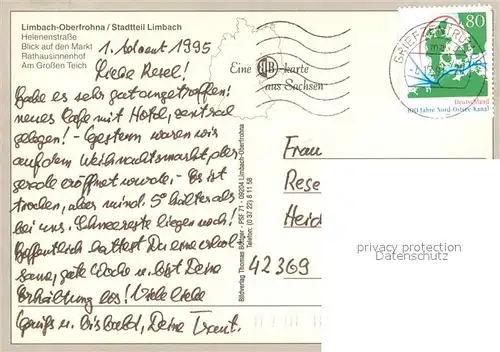 Limbach-Oberfrohna / Stadtteil Limbach
Helenenstraße
Blick auf den Markt
Rathausinnenhof
Am Großen Teich
1. Advent 1995
Liebe Resel!
Habe es sehr gut angetroffen!
neues Cafe mit Hotel, zentral
gelegen! - Gestern waren wir
auf dem Weihnachtsmarkt der
gerade eröffnet wurde. - Es ist
trocken, aber mind. 5° kälter als
bei uns. Schneereste liegen noch!
Hoffentlich hattest Du eine erhol-
same, gute Woche u. bist Deine
Erkältung los! Viele liebe
Grüße u. bis bald, Deine Traut.
Eine Bild-karte
aus Sachsen
Bildverlag Thomas Böttger - PSF 71 - 09204 Limbach-Oberfrohna
Telefon: (0 37 22) 8 11 58
80
BRIEFZENTRUM
Deutschland
100 Jahre Nord-Ostsee-Kanal
Frau
Rese
Heid
42369
privacy protection
Datenschutz